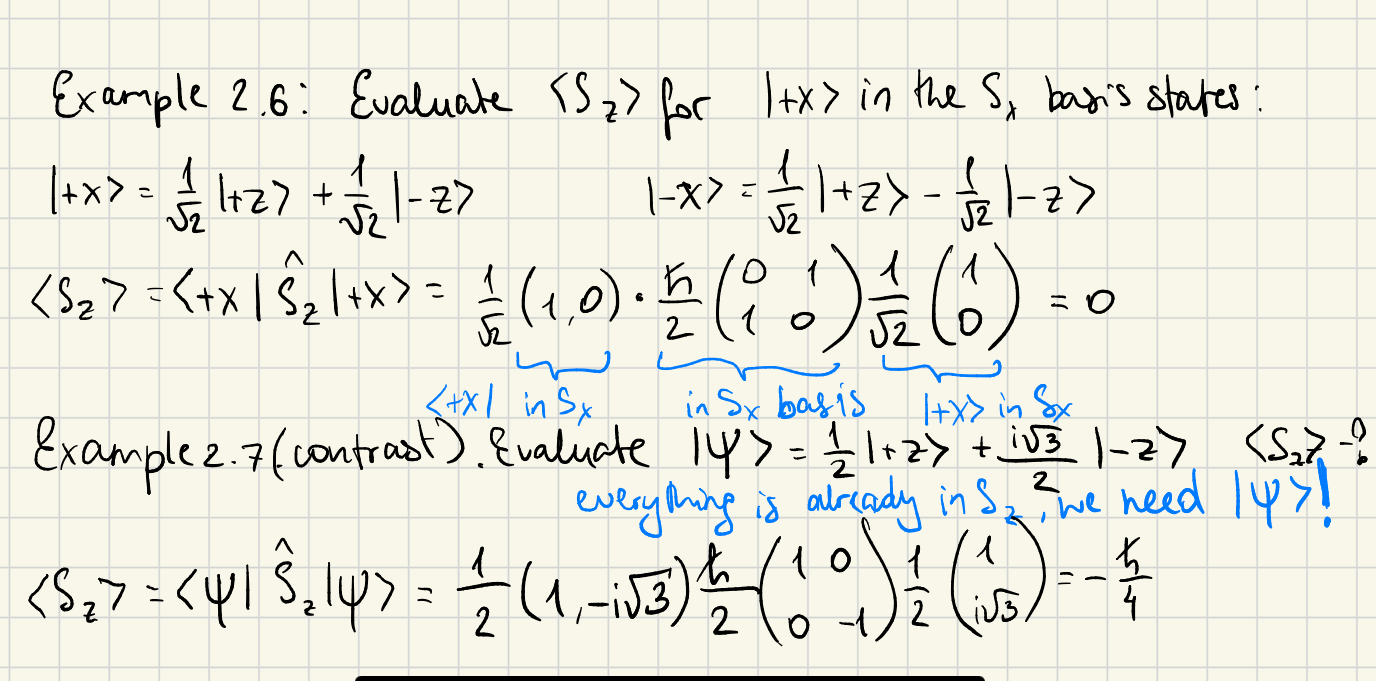 Example 2.6: Evaluate <S_z> for |+x> in the S_x basis states:
|+x> = 1/√2 |+z> + 1/√2 |-z>    |-x> = 1/√2 |+z> - 1/√2 |-z>
<S_z> = <+x| Ŝ_z |+x> = 1/√2 (1,0) · ħ/2 (0 1; 1 0) 1/√2 (1; 0) = 0
<+x| in S_x    in S_x basis    |+x> in S_x
Example 2.7 (contrast). Evaluate |ψ> = 1/2 |+z> + i√3/2 |-z>    <S_z> - ?
everything is already in S_z, we need |ψ>!
<S_z> = <ψ| Ŝ_z |ψ> = 1/2 (1, -i√3) ħ/2 (1 0; 0 -1) 1/2 (1; i√3) = -ħ/4